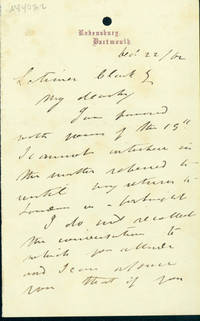 Ravensbury,
Dartmouth.
Oct 22/82
Latimer Clark Esq
My dear Sir
I am favored
with yours of the 19th
I cannot interfere in
the matter referred to
until my return to
London in a fortnight
I do not recollect
the conversation to
which you allude
and I can assure
you that if you